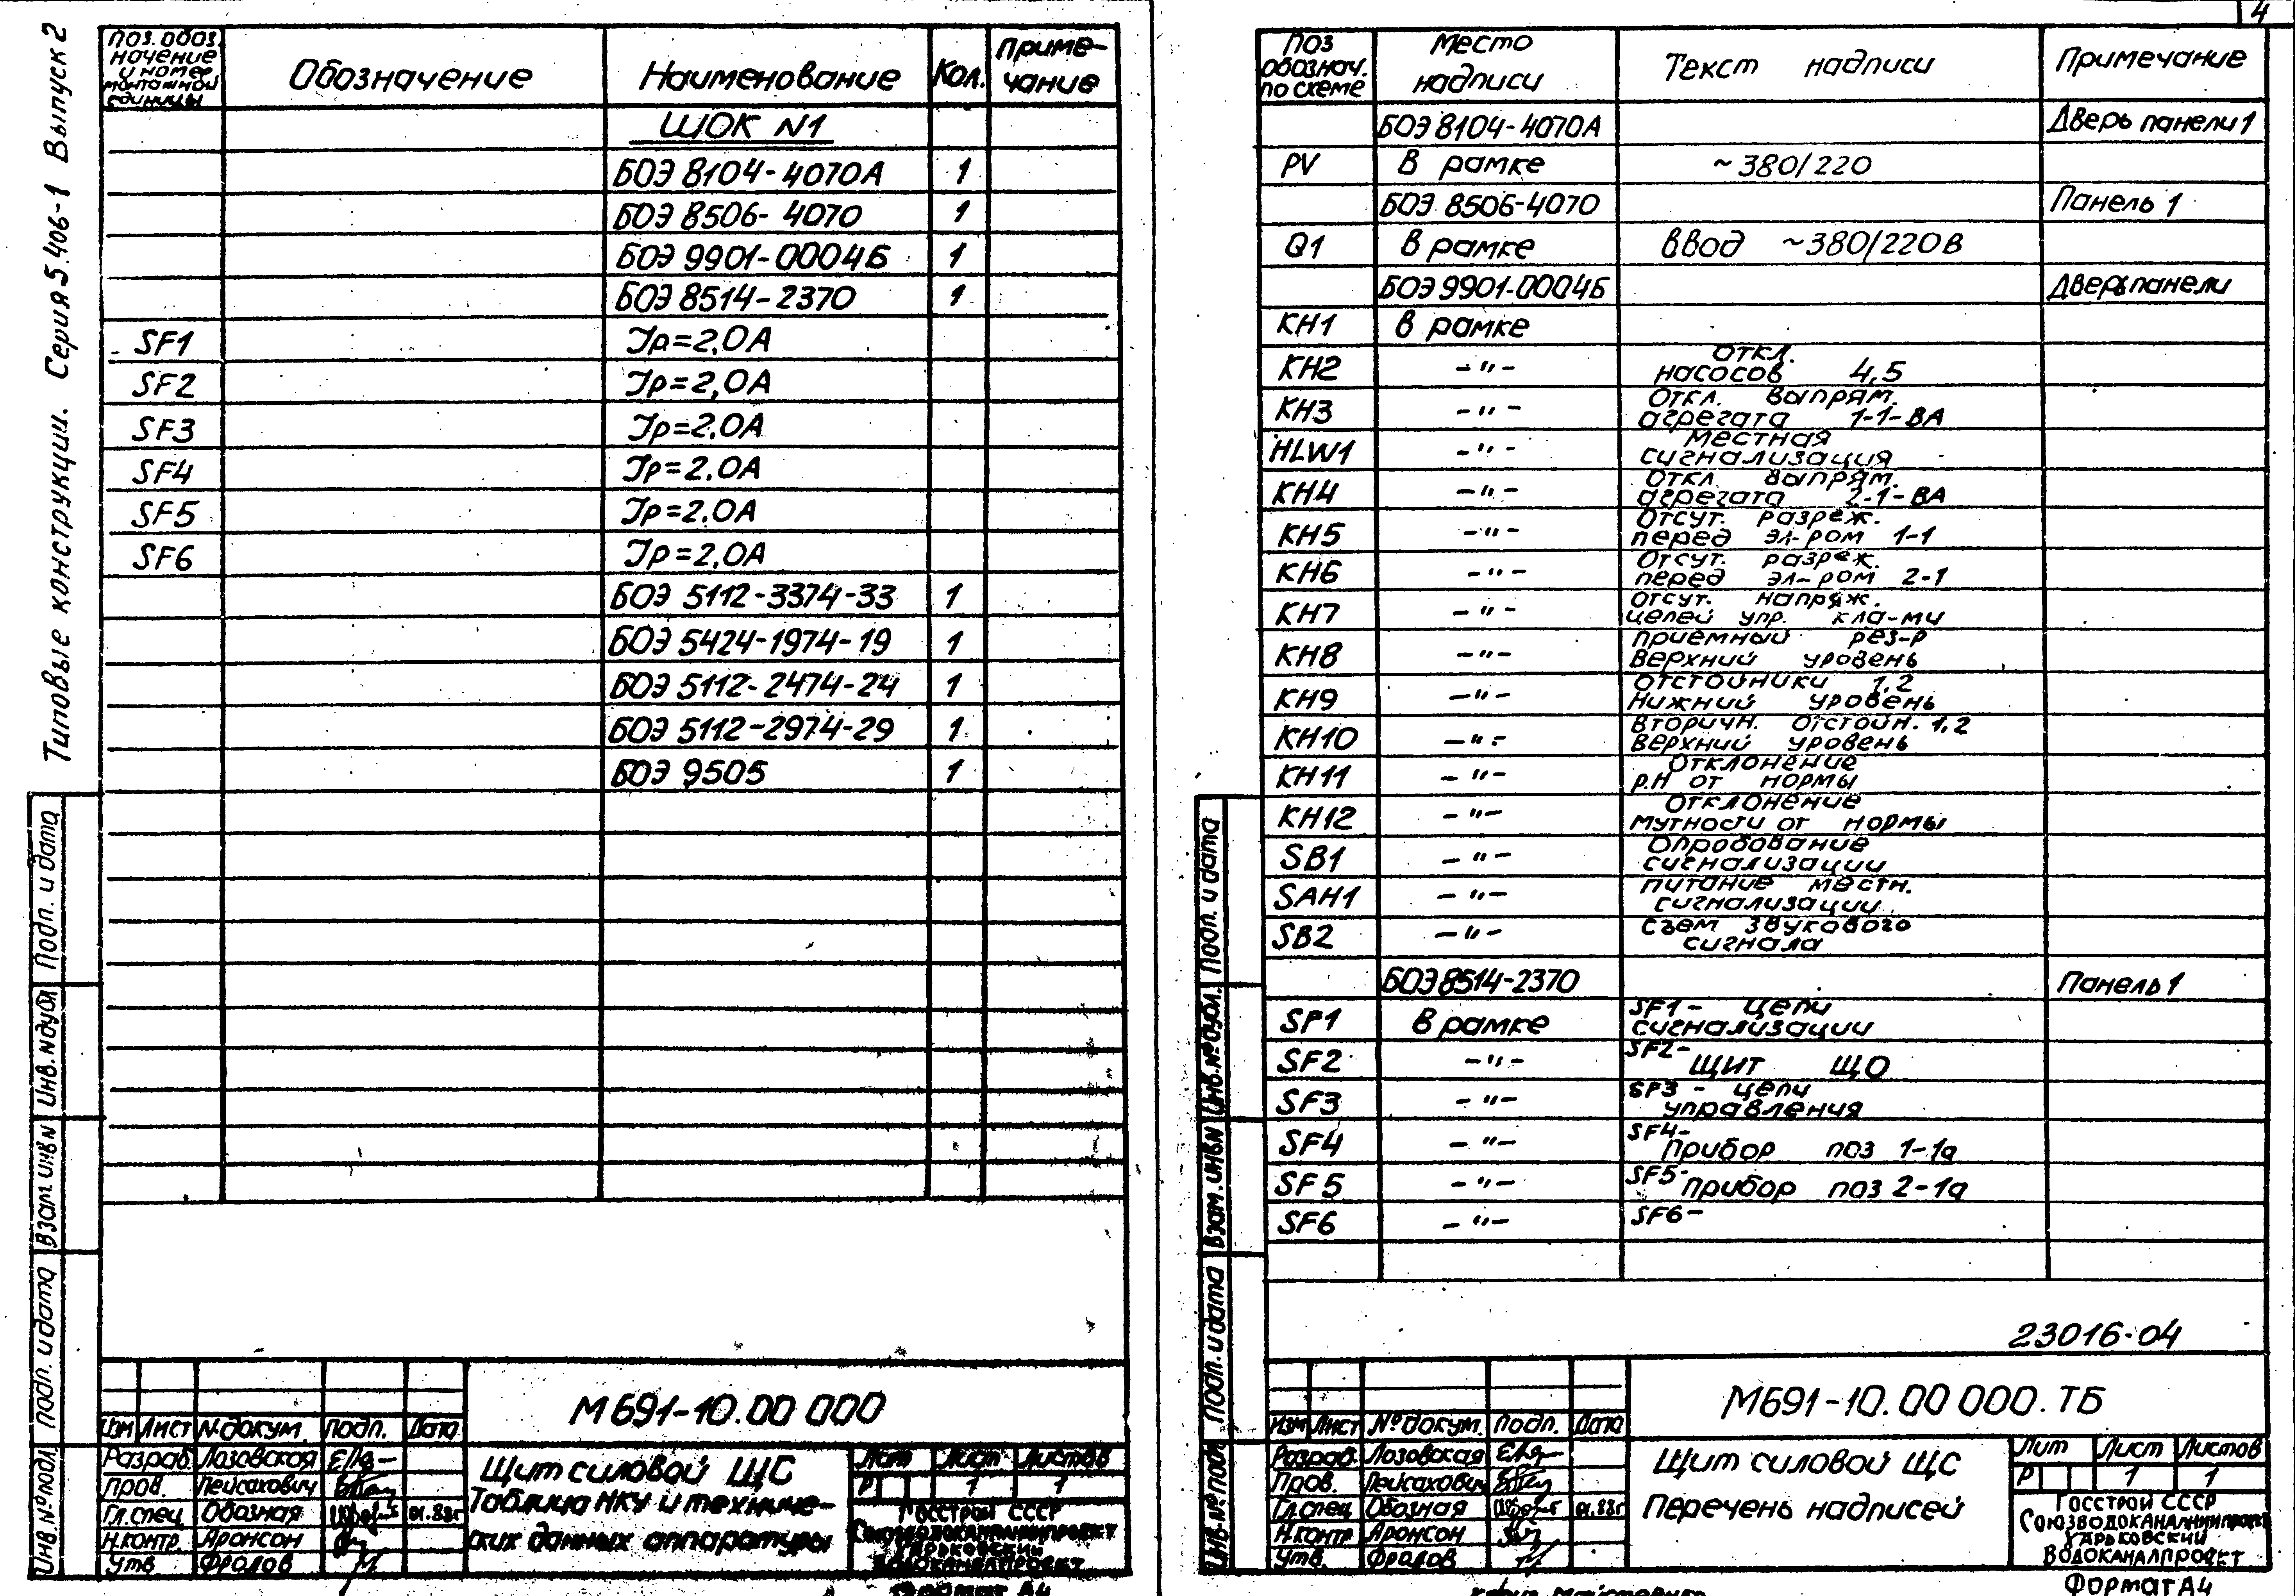 Типовые конструкции. Серия 5.406-1 Выпуск 2
Поз. обоз-
начение
и номер
монтажной
единицы
Обозначение
Наименование
Кол.
Приме-
чание
ЩОК N1
БОЭ 8104-4070А 1
БОЭ 8506-4070 1
БОЭ 9901-0004Б 1
БОЭ 8514-2370 1
SF1 Iр=2,0А
SF2 Iр=2,0А
SF3 Iр=2,0А
SF4 Iр=2.0А
SF5 Iр=2.0А
SF6 Iр=2,0А
БОЭ 5112-3374-33 1
БОЭ 5424-1974-19 1
БОЭ 5112-2474-24 1
БОЭ 5112-2974-29 1
БОЭ 9505 1
Инв.№подл. Подп. и дата Взам. инв N Инв. N дубл Подп. и дата
М691-10.00 000
Изм Лист N докум. Подп. Дата
Разраб. Лозовская
Пров. Пейсахович
Гл.спец Обозная 01.88г
Н.контр. Аронсон
Утв. Фролов
Щит силовой ЩС
Таблица НКУ и техниче-
ских данных аппаратуры
Лит Лист Листов
Р 1 1
Госстрой СССР
Союзводоканалниипроект
Харьковский
Водоканалпроект
Формат А4
4
Поз
обознач.
по схеме
Место
надписи
Текст надписи
Примечание
БОЭ 8104-4070А Дверь панели 1
PV В рамке ~380/220
БОЭ 8506-4070 Панель 1
Q1 В рамке Ввод ~380/220В
БОЭ 9901-0004Б Дверь панели
КН1 В рамке
КН2 -"- Откл.
насосов 4,5
КН3 -"- Откл. выпрям.
агрегата 1-1-ВА
HLW1 -"- Местная
сигнализация
КН4 -"- Откл выпрям.
агрегата 2-1-ВА
КН5 -"- Отсут. разреж.
перед эл-ром 1-1
КН6 -"- Отсут. разреж.
перед эл-ром 2-1
КН7 -"- Отсут. напряж.
цепей упр. кла-ми
КН8 -"- Приемный рез-р
Верхний уровень
КН9 -"- Отстойники 1,2
Нижний уровень
КН10 -"- Вторичн. отстойн. 1,2
Верхний уровень
КН11 -"- Отклонение
р.Н от нормы
КН12 -"- Отклонение
мутности от нормы
SB1 -"- Опробование
сигнализации
SAH1 -"- Питание местн.
сигнализации
SB2 -"- Съем звукового
сигнала
БОЭ 8514-2370 Панель 1
SF1 В рамке SF1- Цепи
сигнализации
SF2 -"- SF2-
Щит ЩО
SF3 -"- SF3 - Цепи
управления
SF4 -"- SF4-
Прибор поз 1-1а
SF5 -"- SF5-
Прибор поз 2-1а
SF6 -"- SF6-
23016-04
Инв.№подл Подп. и дата Взам. инв N Инв.№дубл. Подп. и дата
М691-10.00 000.ТБ
Изм Лист №докум. Подп. Дата
Разраб. Лозовская
Пров. Пейсахович
Гл.спец Обозная 01.88г
Н.контр Аронсон
Утв. Фролов
Щит силовой ЩС
Перечень надписей
Лит Лист Листов
Р 1 1
Госстрой СССР
Союзводоканалниипроект
Харьковский
Водоканалпроект
Формат А4